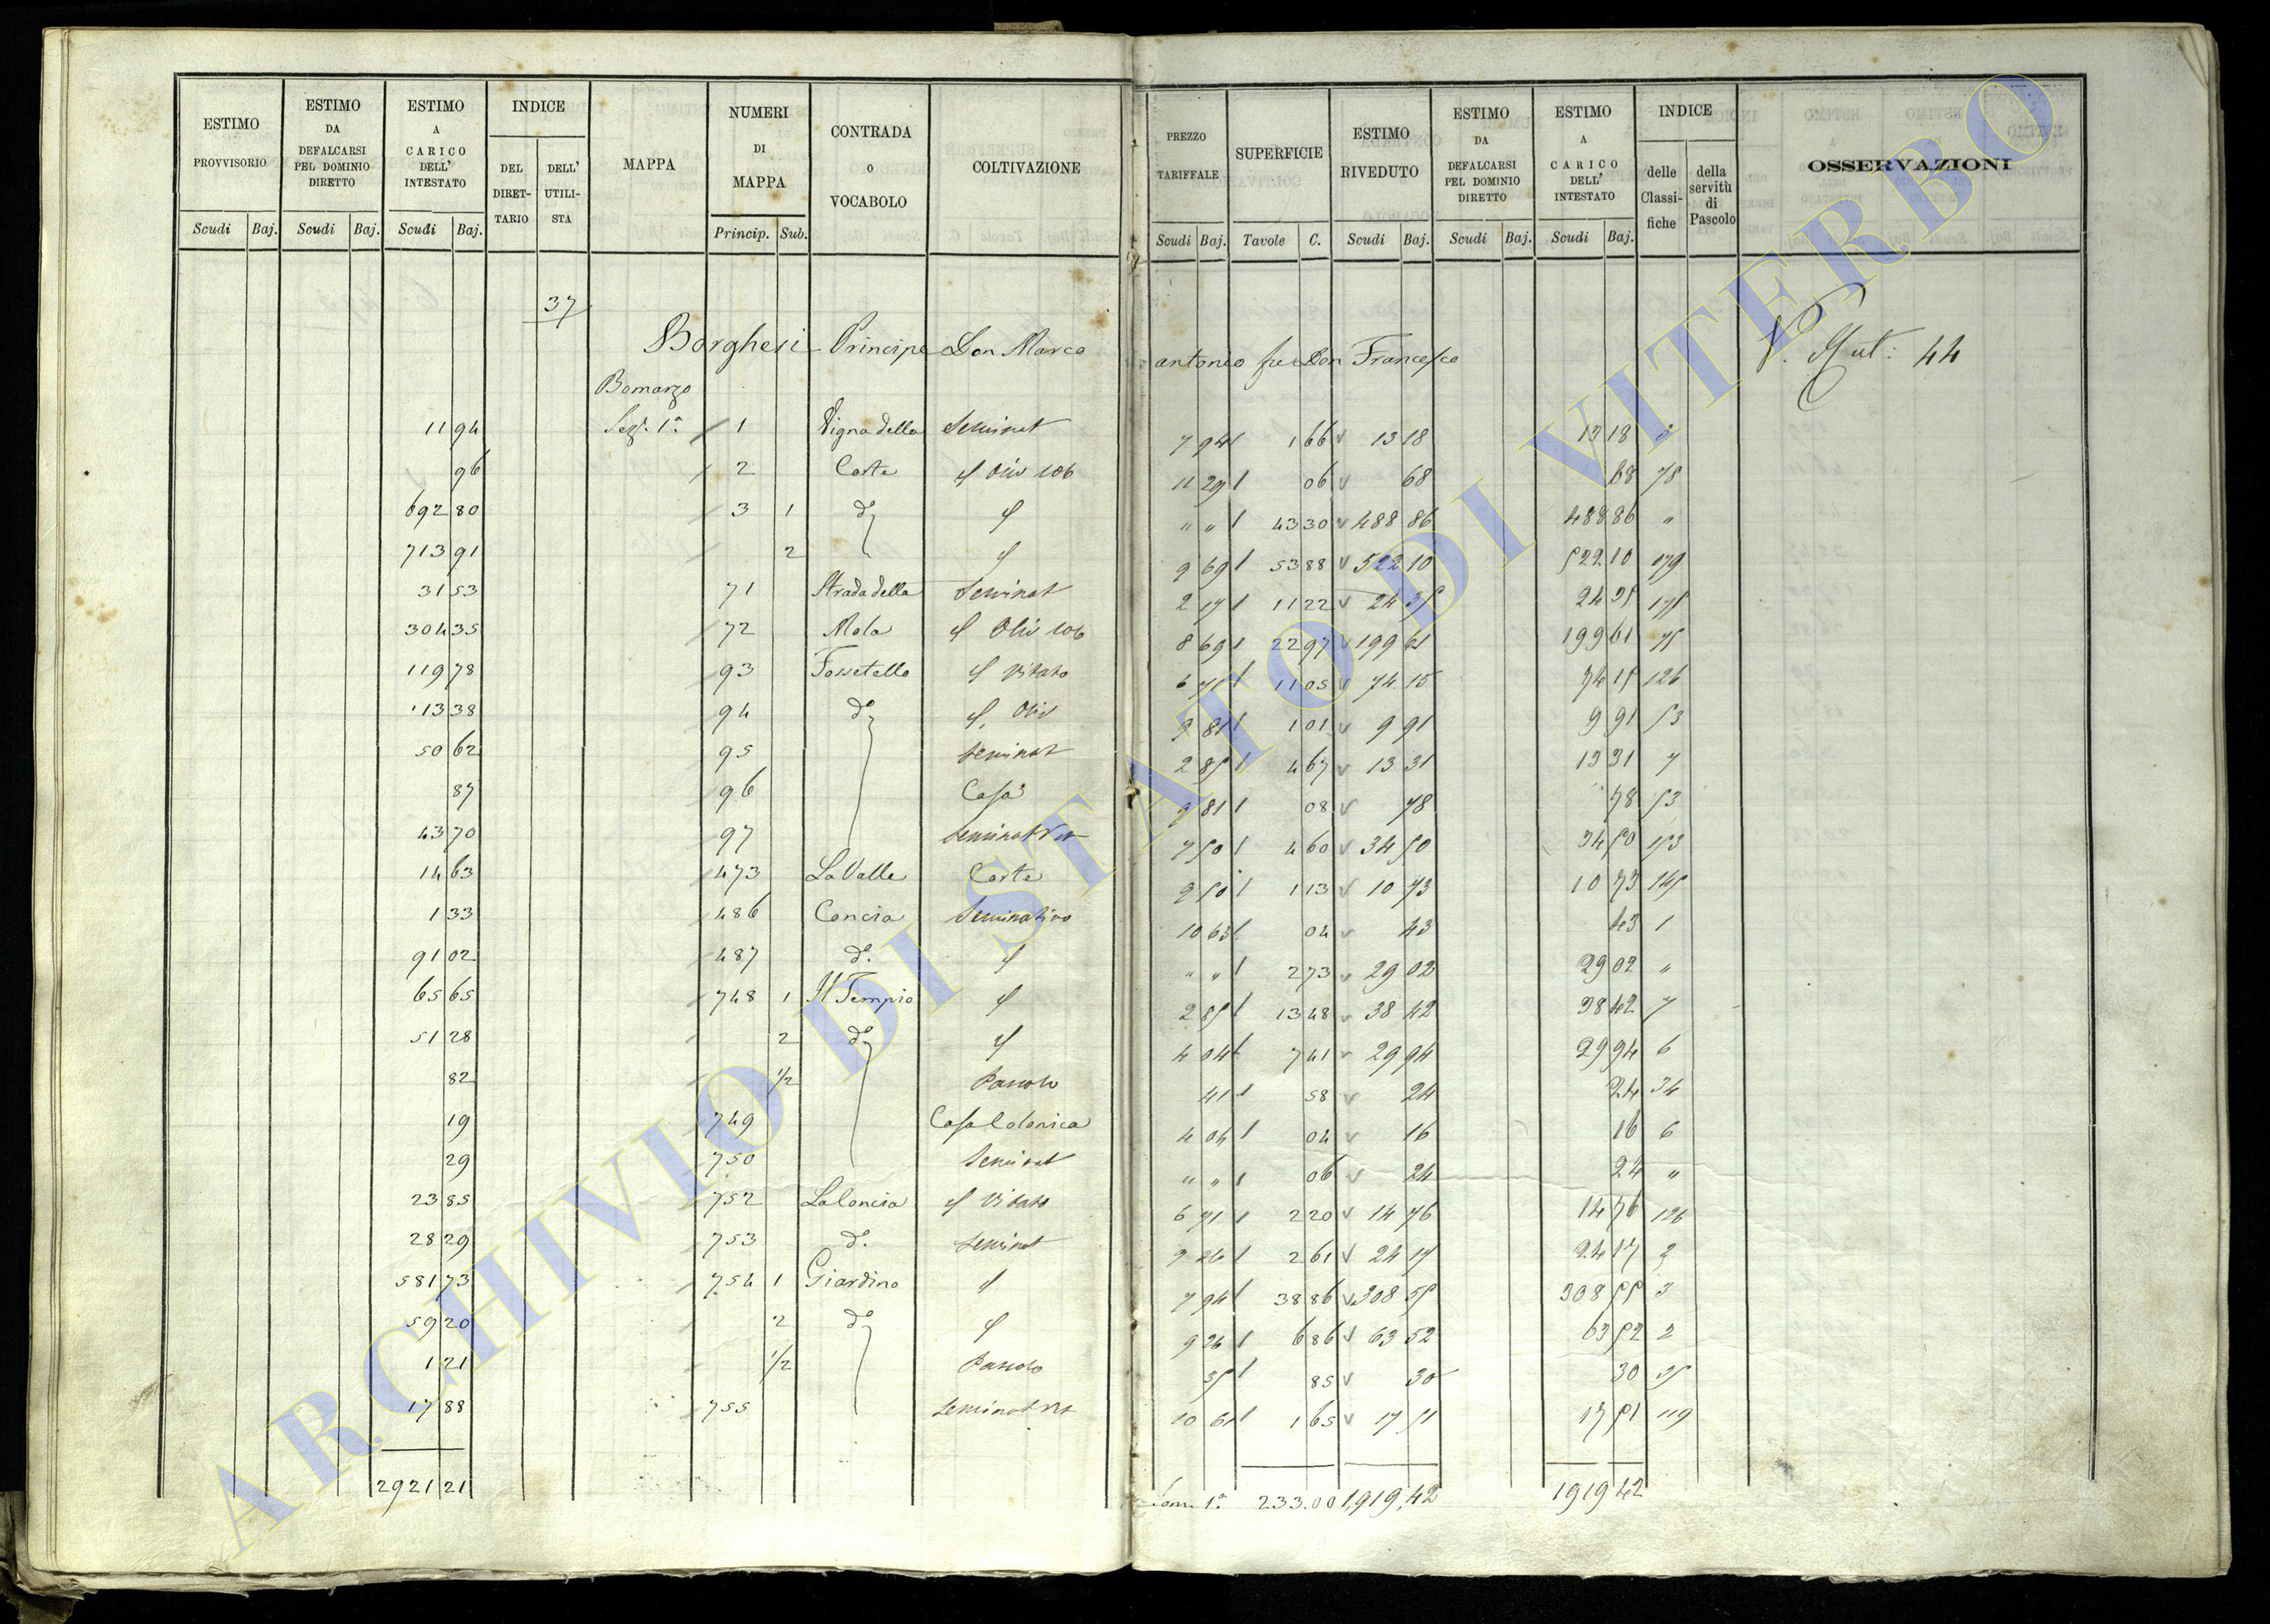 ESTIMO PROVVISORIO | ESTIMO DA DEFALCARSI PEL DOMINIO DIRETTO | ESTIMO A CARICO DELL' INTESTATO | INDICE | MAPPA | NUMERI DI MAPPA | CONTRADA O VOCABOLO | COLTIVAZIONE | PREZZO TARIFFALE | SUPERFICIE | ESTIMO RIVEDUTO | ESTIMO DA DEFALCARSI PEL DOMINIO DIRETTO | ESTIMO A CARICO DELL' INTESTATO | INDICE | OSSERVAZIONI
DEL DIRETTARIO | DELL' UTILISTA | delle Classifiche | della servitù di Pascolo
Scudi Baj. | Scudi Baj. | Scudi Baj. | Princip. Sub. | Scudi Baj. | Tavole C. | Scudi Baj. | Scudi Baj. | Scudi Baj.
37
Borghesi Principe Don Marco antonio fu Don Francesco V. Mut: 44
Bomarzo
11 94 Sez. 1ª 1 Vigna della Seminat 7 94 1 66 13 18 13 18 3
96 2 Corte Oliv 11 29 06 68 68 78
692 80 3 1 do " " 43 30 488 86 488 86 "
713 91 2 9 69 53 88 522 10 522 10 179
31 53 71 Strada della Seminat 2 17 11 22 24 35 24 35 175
304 35 72 Mola Oliv 8 69 22 97 199 61 199 61 75
119 78 93 Fossatello Vitato 6 71 11 05 74 15 74 15 126
13 38 94 do Oliv 9 81 1 01 9 91 9 91 53
50 62 95 Seminat 2 85 4 67 13 31 13 31 7
87 96 Casa 9 81 08 78 78 53
43 70 97 Seminat Vit 7 50 4 60 34 50 34 50 153
14 63 473 La Valle Corte 9 50 1 13 10 73 10 73 145
1 33 486 Concia Seminativo 10 63 04 43 43 1
91 02 487 do. " " 2 73 29 02 29 02 "
65 65 748 1 Il Tempio 2 85 13 48 38 42 38 42 7
51 28 2 do 4 04 7 41 29 94 29 94 6
82 1/2 Pascolo 41 58 24 24 34
19 749 Casa Colonica 4 04 04 16 16 6
29 750 Seminat " " 06 24 24 "
23 85 752 La Concia Vitato 6 71 2 20 14 76 14 76 126
28 29 753 do. Seminat 9 26 2 61 24 17 24 17 2
581 73 754 1 Giardino 7 94 38 86 308 55 308 55 3
59 20 2 do 9 26 6 86 63 52 63 52 2
1 21 1/2 Pascolo 35 85 30 30 35
17 88 755 Seminat Vit 10 61 1 65 17 51 17 51 119
2921 21 Som. 1ª 233.00 1,919,42 1919 42
ARCHIVIO DI STATO DI VITERBO